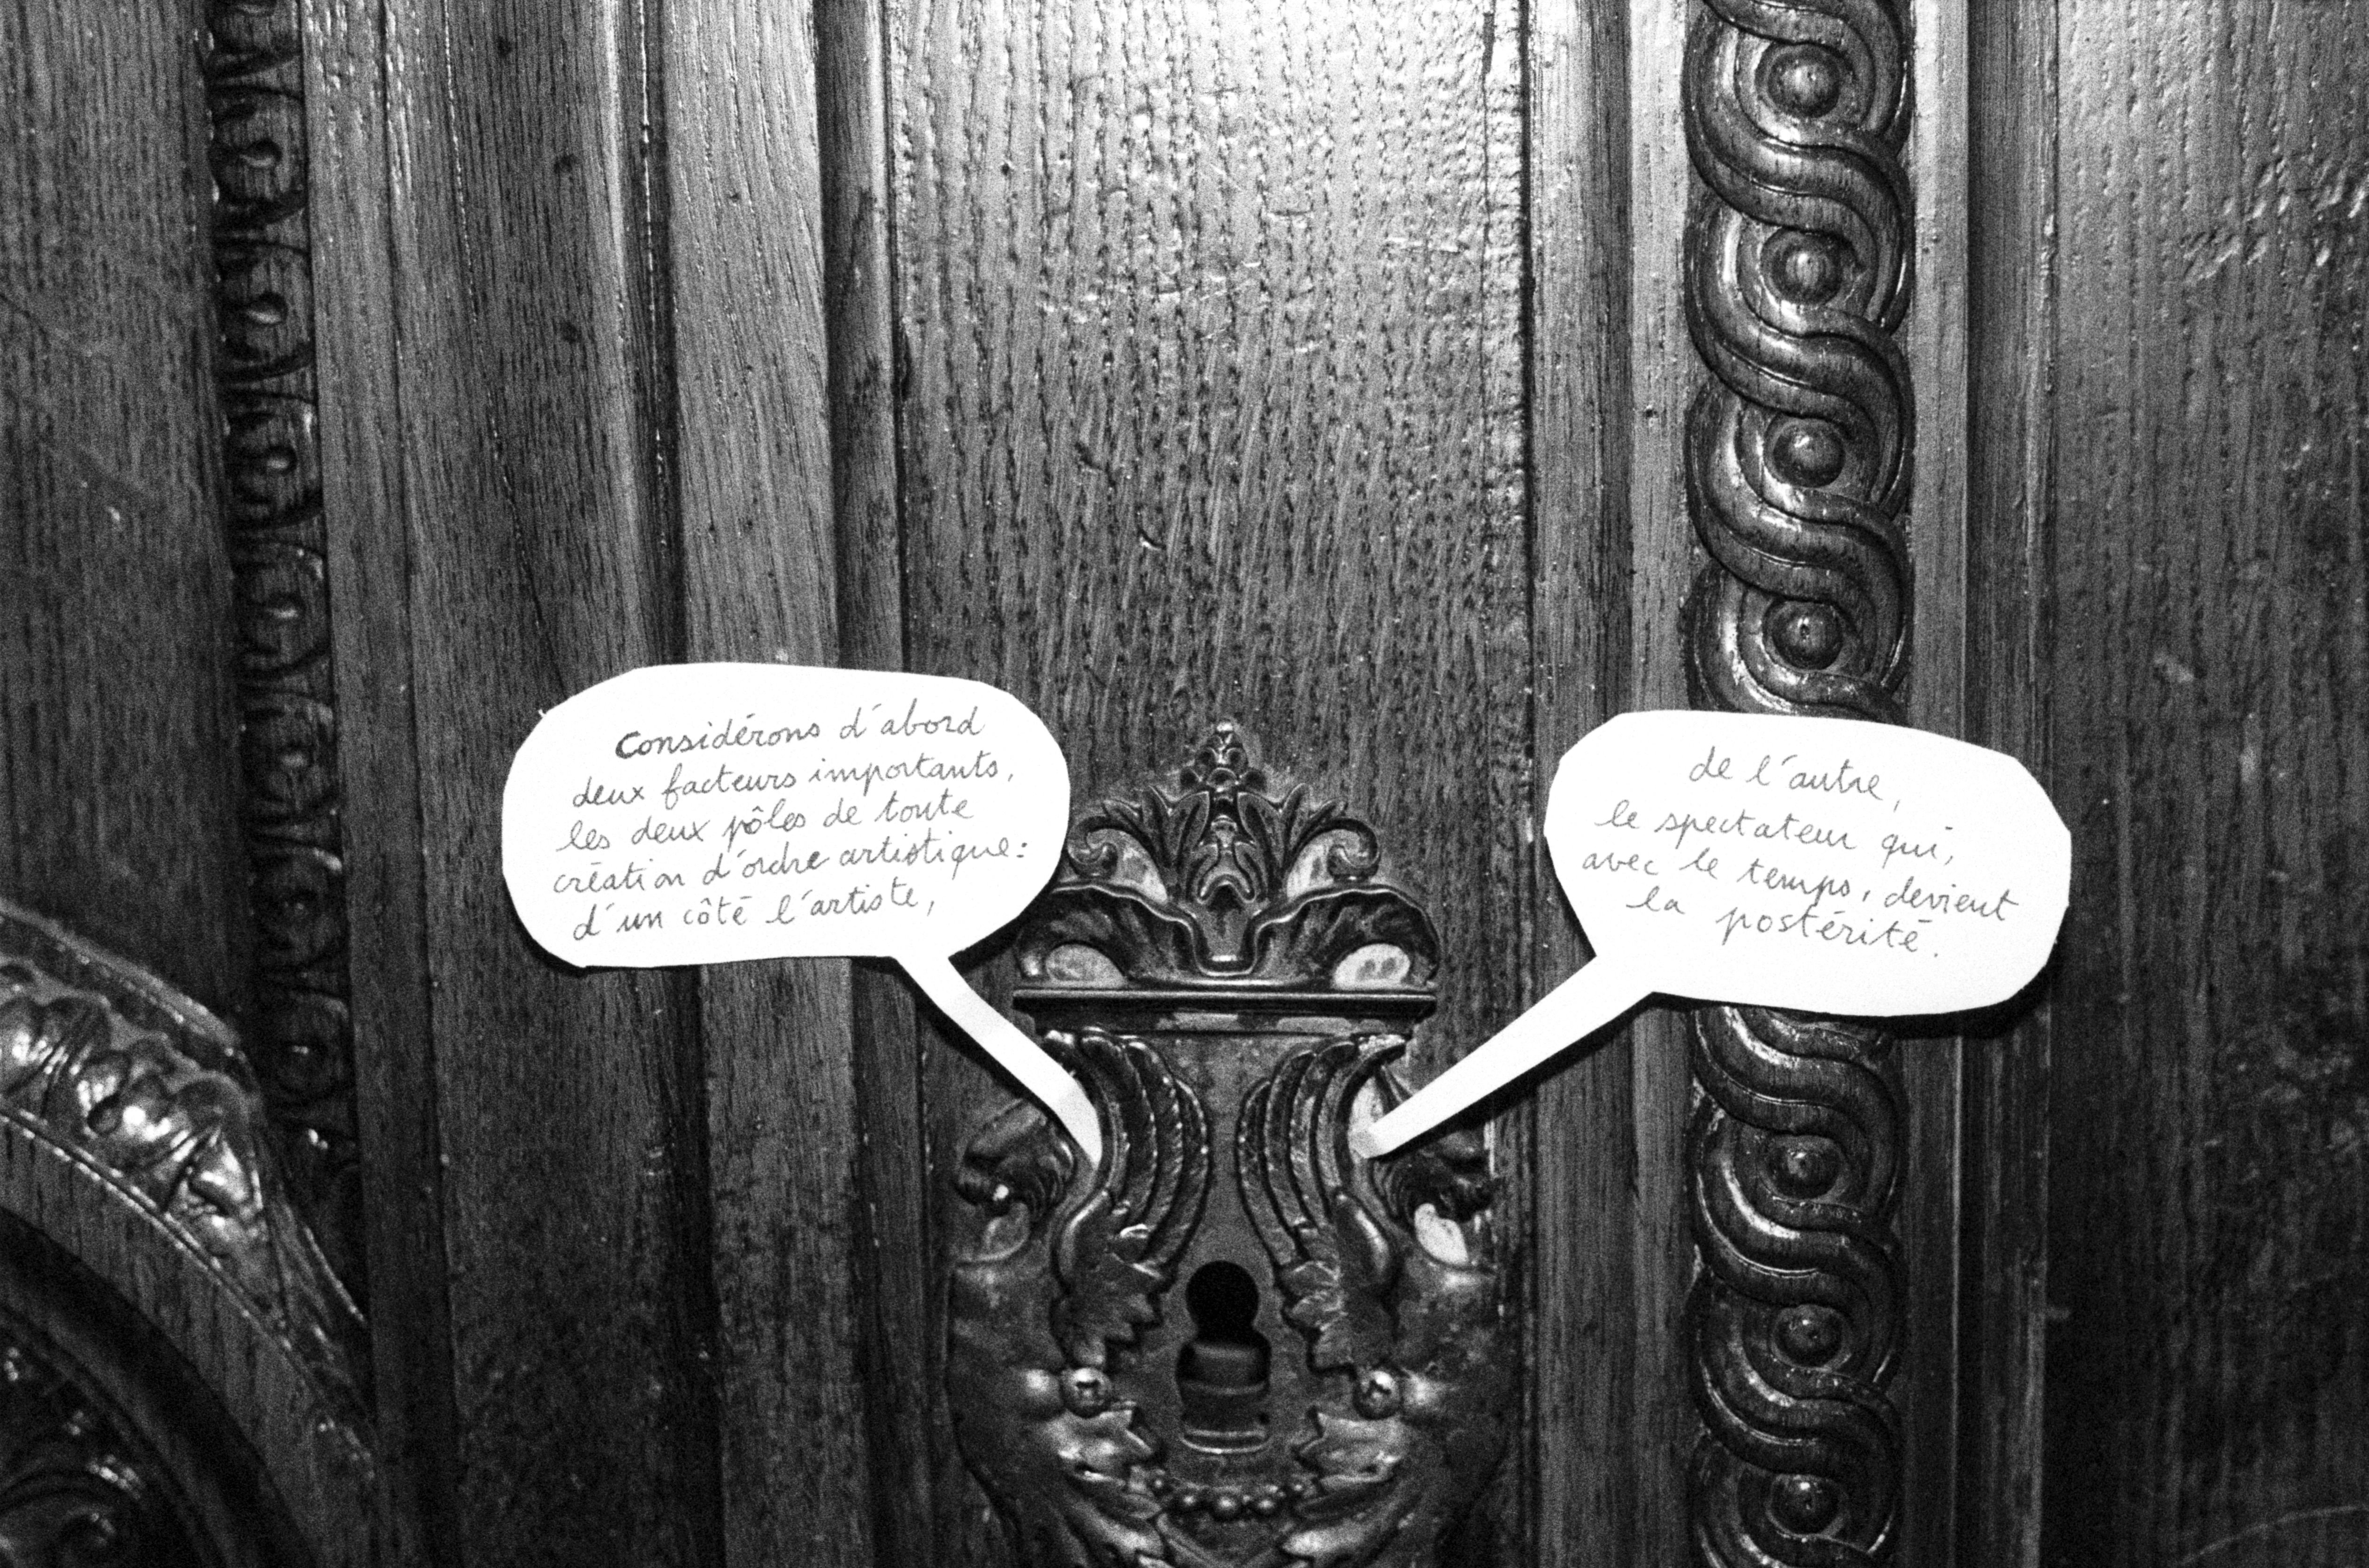 Considérons d'abord
deux facteurs importants,
les deux pôles de toute
création d'ordre artistique:
d'un côté l'artiste,
de l'autre,
le spectateur qui,
avec le temps, devient
la postérité.